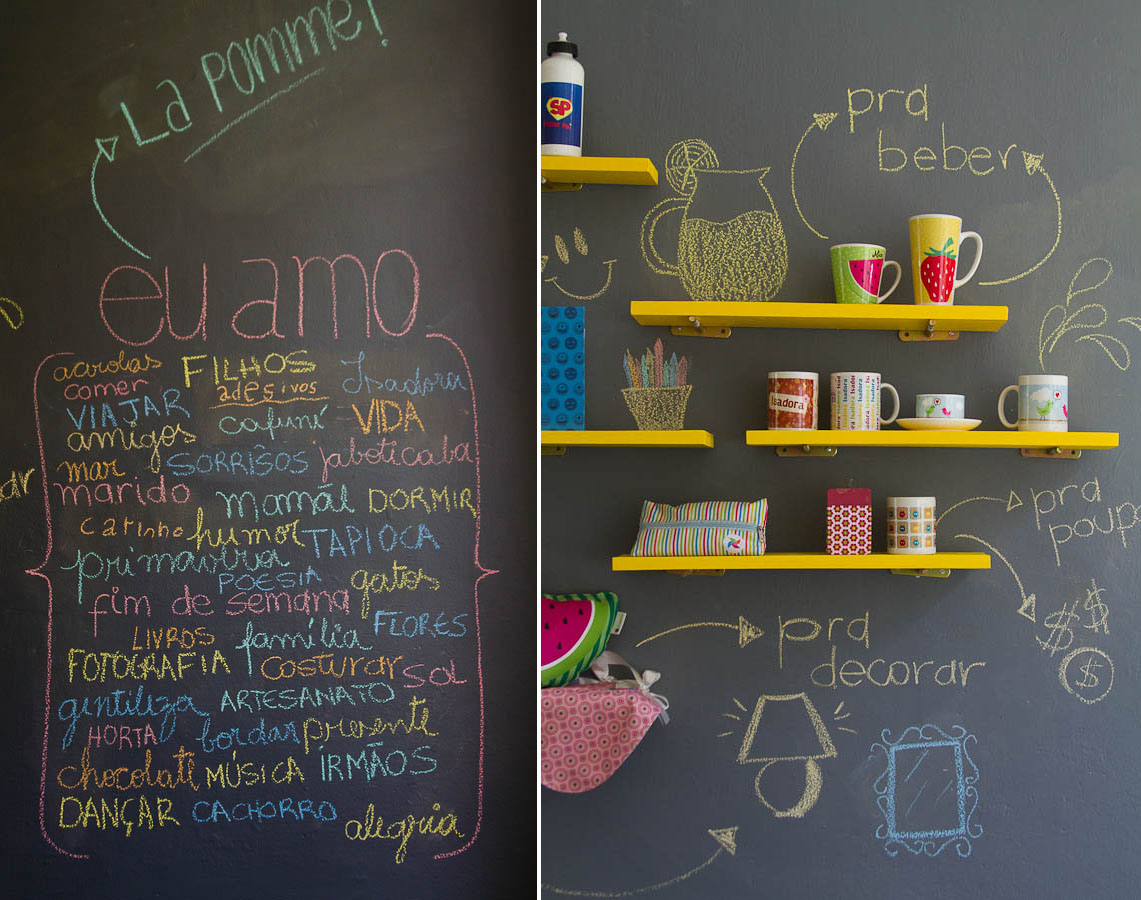 La Pomme!
eu amo
acrolas FILHOS Isadora
comer adesivos
VIAJAR cafuné VIDA
amigos
mar SORRISOS jaboticaba
marido mamãe DORMIR
carinho humor TAPIOCA
primavera
POESIA gatos
fim de semana
LIVROS família FLORES
FOTOGRAFIA costurar sol
gentileza ARTESANATO
HORTA bordar presente
chocolate MÚSICA IRMÃOS
DANÇAR CACHORRO alegria
SP
pra
beber
Isadora
pra
poup
pra
decorar
$ $
$